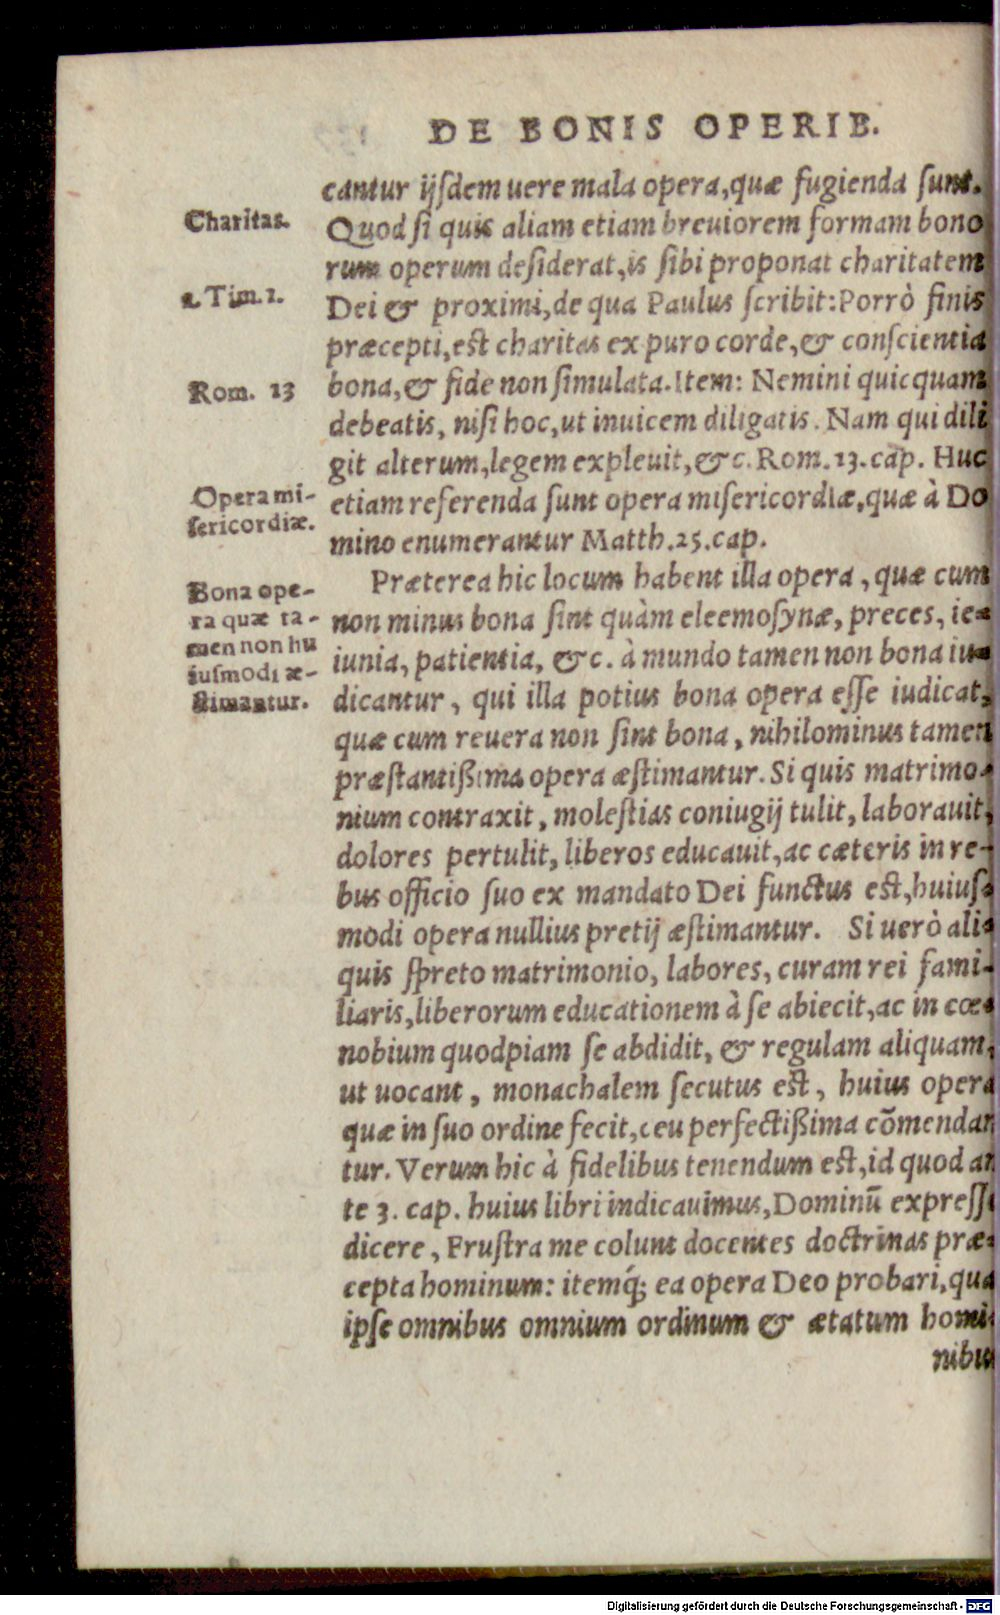 DE BONIS OPERIB.
cantur ijſdem uere mala opera, quæ fugienda ſunt.
Charitas.
Quod ſi quis aliam etiam breuiorem formam bono
rum operum deſiderat, is ſibi proponat charitatem
1. Tim. 1.
Dei & proximi, de qua Paulus ſcribit: Porrò finis
præcepti, eſt charitas ex puro corde, & conſcientia
Rom. 13
bona, & fide non ſimulata. Item: Nemini quicquam
debeatis, niſi hoc, ut inuicem diligatis. Nam qui dili
git alterum, legem expleuit, &c. Rom. 13. cap. Huc
Opera mi-
ſericordiæ.
etiam referenda ſunt opera miſericordiæ, quæ à Do
mino enumerantur Matth. 25. cap.
Bona ope-
ra quæ ta-
men non hu
iuſmodi æ-
ſtimantur.
Præterea hic locum habent illa opera, quæ cum
non minus bona ſint quàm eleemoſynæ, preces, ie-
iunia, patientia, &c. à mundo tamen non bona iu-
dicantur, qui illa potius bona opera eſſe iudicat,
quæ cum reuera non ſint bona, nihilominus tamen
præſtantißima opera æſtimantur. Si quis matrimo-
nium contraxit, moleſtias coniugij tulit, laborauit,
dolores pertulit, liberos educauit, ac cæteris in re-
bus officio ſuo ex mandato Dei functus eſt, huiuſ-
modi opera nullius pretij æſtimantur. Si uerò ali-
quis ſpreto matrimonio, labores, curam rei fami-
liaris, liberorum educationem à ſe abiecit, ac in cœ-
nobium quodpiam ſe abdidit, & regulam aliquam,
ut uocant, monachalem ſecutus eſt, huius opera
quæ in ſuo ordine fecit, ceu perfectißima cõmendan
tur. Verum hic à fidelibus tenendum eſt, id quod an
te 3. cap. huius libri indicauimus, Dominũ expreſſe
dicere, Fruſtra me colunt docentes doctrinas præ-
cepta hominum: itemq́; ea opera Deo probari, quæ
ipſe omnibus omnium ordinum & ætatum homi-
nibus
Digitalisierung gefördert durch die Deutsche Forschungsgemeinschaft - DFG